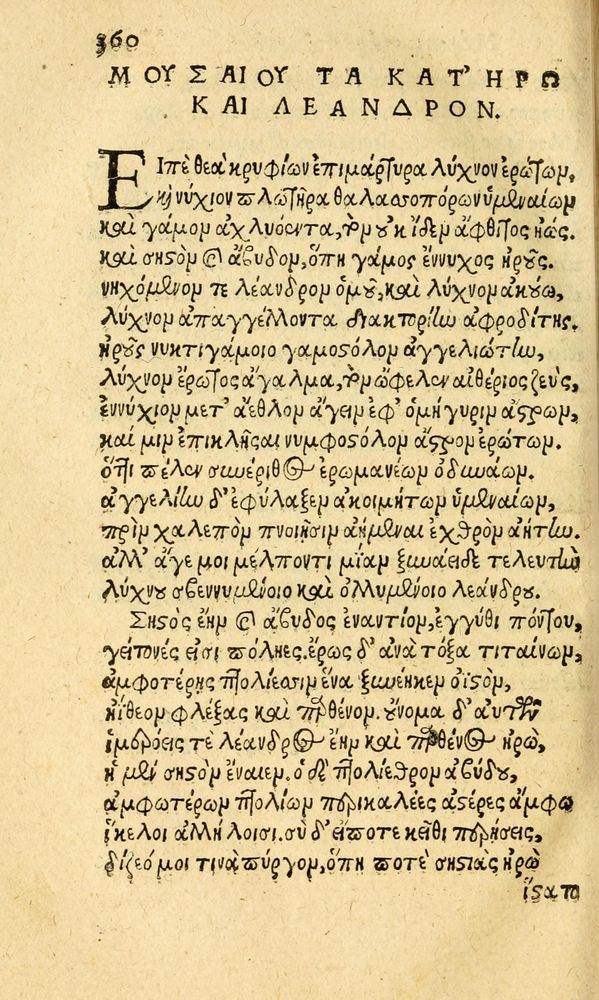 360
ΜΟΥΣΑΙΟΥ ΤΑ ΚΑΤ' ΗΡΩ
ΚΑΙ ΛΕΑΝΔΡΟΝ.
Εἰπὲ θεὰ κρυφίων ἐπιμάρτυρα λύχνον ἐρώτων,
καὶ νύχιον πλωτῆρα θαλασσοπόρων ὑμεναίων
καὶ γάμον ἀχλυόεντα, τὸν οὐκ ἴδεν ἄφθιτος ἠώς.
καὶ σηστὸν καὶ ἄβυδον, ὅπη γάμος ἔννυχος ἡροῦς.
νηχόμενον τε λέανδρον ὁμοῦ, καὶ λύχνον ἀκούω,
λύχνον ἀπαγγέλλοντα διακτορίην ἀφροδίτης.
ἡροῦς νυκτιγάμοιο γαμοστόλον ἀγγελιώτην,
λύχνον ἔρωτος ἄγαλμα, τὸν ὤφελεν αἰθέριος ζεὺς,
ἐννύχιον μετ' ἄεθλον ἄγειν ἐφ' ὁμήγυριν ἄστρων,
καί μιν ἐπικλῆσαι νυμφοστόλον ἄστρον ἐρώτων.
ὅττι πέλεν συνέριθος ἐρωμανέων ὀδυνάων.
ἀγγελίην δ' ἐφύλαξεν ἀκοιμήτων ὑμεναίων,
πρὶν χαλεπὸν πνοιῇσιν ἀήμεναι ἐχθρὸν ἀήτην.
ἀλλ' ἄγε μοι μέλποντι μίαν ξυνάειδε τελευτὴν
λύχνου σβεννυμένοιο καὶ ὀλλυμένοιο λεάνδρου.
Σηστὸς ἔην καὶ ἄβυδος ἐναντίον, ἐγγύθι πόντου,
γείτονές εἰσι πόληες. ἔρως δ' ἀνὰ τόξα τιταίνων,
ἀμφοτέρῃς πτολίεσσιν ἕνα ξυνέηκεν ὀϊστὸν,
ἠΐθεον φλέξας καὶ παρθένον. οὔνομα δ' αὐτῶν
ἱμερόεις τὲ λέανδρος ἔην καὶ παρθένος ἡρώ,
ἡ μὲν σηστὸν ἔναιεν. ὁ δὲ πτολίεθρον ἀβύδου,
ἀμφωτέρων πτολίων περικαλέες ἀστέρες ἄμφω
ἴκελοι ἀλλήλοισι. σὺ δ' εἴποτε κεῖθι περήσεις,
δίζεό μοι τινὰ πύργον, ὅπη ποτὲ σηστιὰς ἡρὼ
ἵστατο